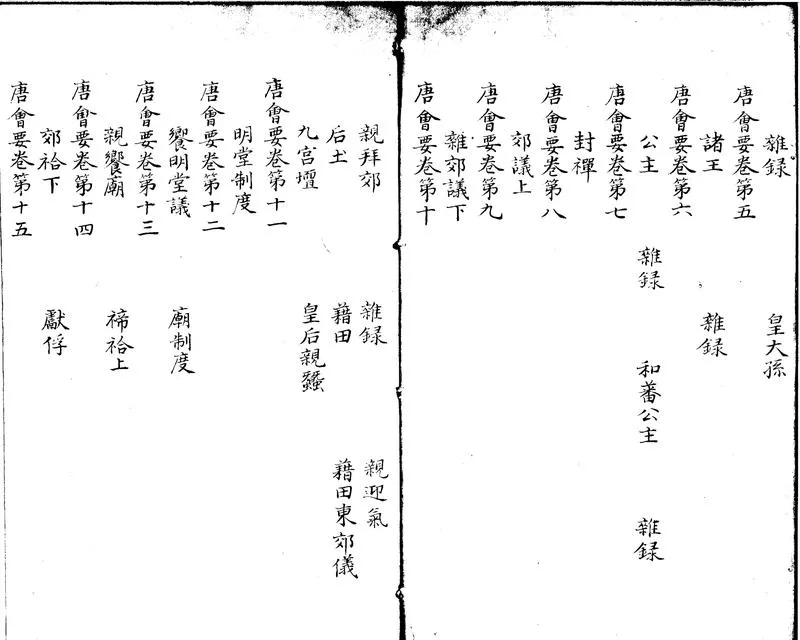 雜録 皇大孫
唐會要卷第五
諸王 雜録
唐會要卷第六
公主 雜録 和蕃公主 雜録
唐會要卷第七
封禪
唐會要卷第八
郊議上
唐會要卷第九
雜郊議下
唐會要卷第十
親拜郊 雜録 親迎氣
后土 藉田 藉田東郊儀
九宫壇 皇后親蠶
唐會要卷第十一
明堂制度
唐會要卷第十二
饗明堂議 廟制度
唐會要卷第十三
親饗廟 禘祫上
唐會要卷第十四
郊祫下 獻俘
唐會要卷第十五